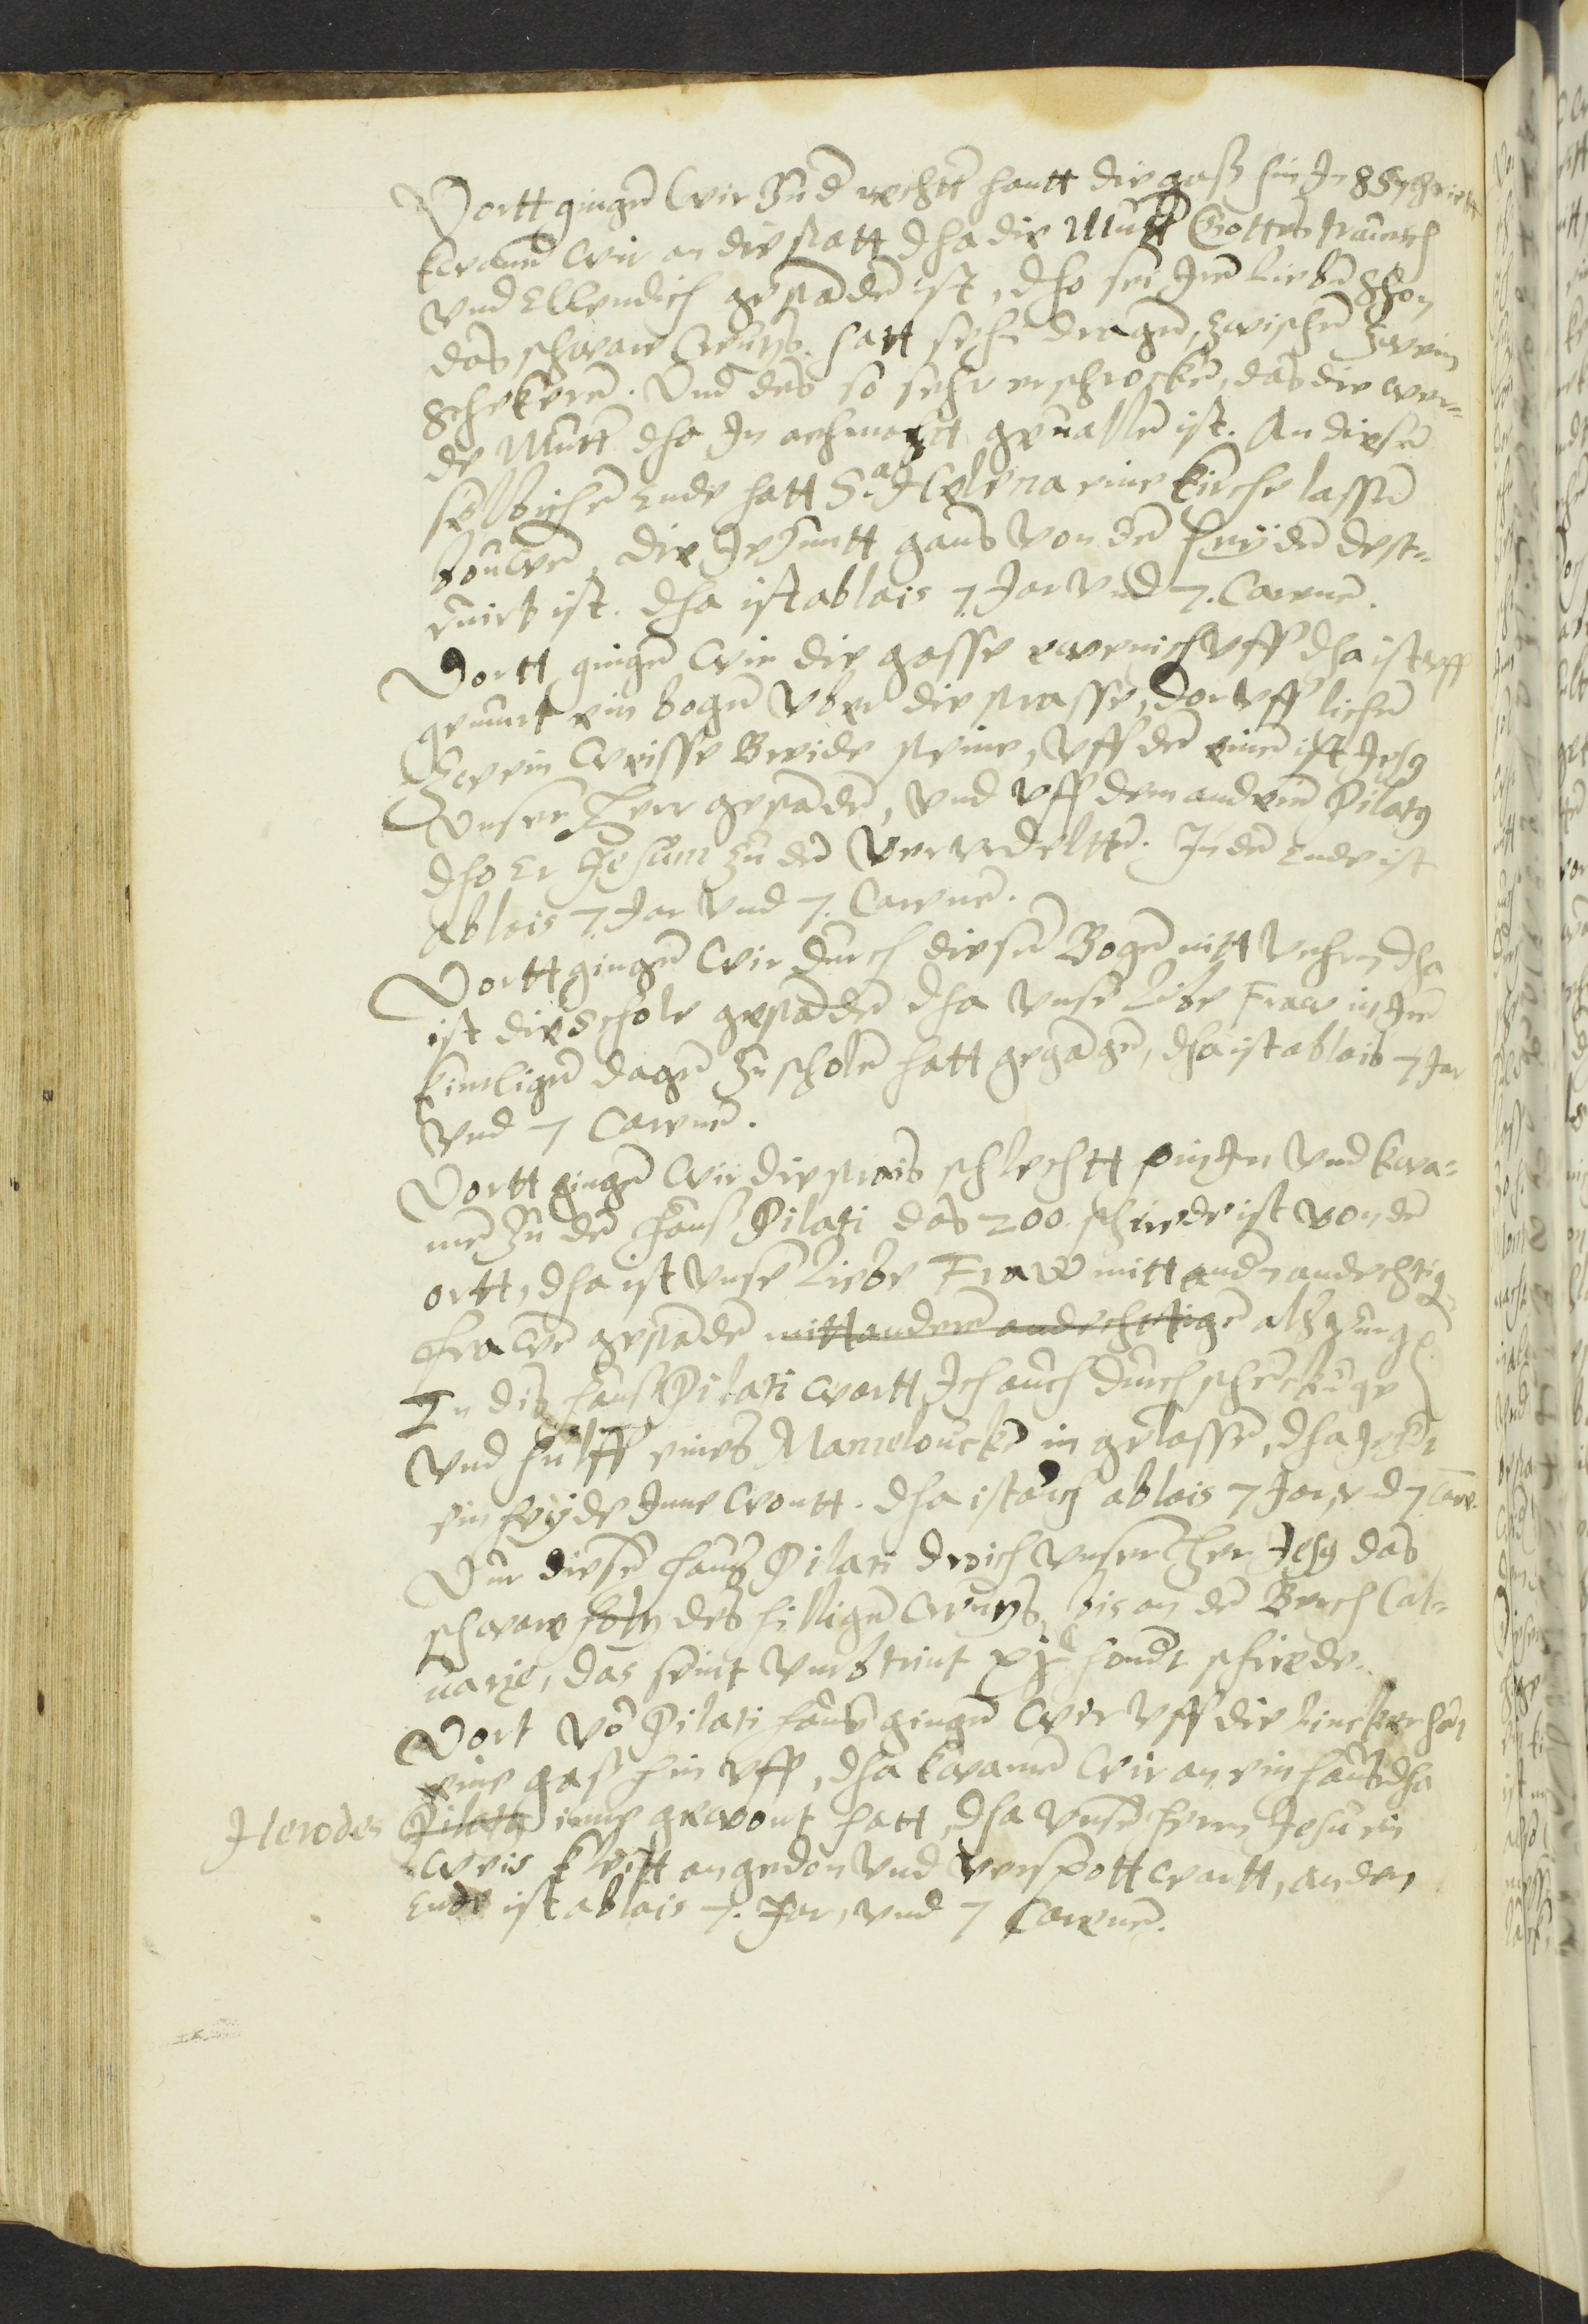 Vortt gingen wir zu der rechtt hantt die gass hin In 85 schriet
kwamen wir an die statt dha die Mutter Gottes traurich
vnd Ellendich gestanden ist, dho sei Iren lieben Shon
das schwair Creutz hatt sehen dragen, zwischen zwein
Schekeren. Vnd des so sehr erschrocken, das die wer-
de Mutter dha In aehmacht geuallen ist. An diesen
selbichen Ende hatt S.a Helena eine kirche lassen
bouwen, die Jetzuntt gans von den heyden dest-
ruirt ist. dha ist ablais 7. Jar vnd 7. Carenen.
Vortt gingen wir die gasse ewenich vff dha ist vff
gemurt ein bogen vber die strasse, dar vff lichen
zwein wisse Breide steine, vff den einen ist Jesus
vnser Herr gestanden, vnd vff dem anderen Pilatus
dho Er Jesum zu der verurdeltten. In den Ende ist
ablais 7. Jar vnd 7. Carenen.
Vortt gingen wir durch diesen Bogen nitt vehr, dha
ist die Schole gestanden dha vnse liebe Fraw in Iren
kintligen dagen zu scholen hatt gegangen, dha ist ablais 7 Jar
vnd 7 Carenen.
Vortt gingen wir die strais schlechtt hin In vnd kwa-
men zu den hauss Pilati das 200. schrede ist von den
ortt, dha ist vnse liebe Fraw mitt andren andechtigen
frawen gestanden mitt anderen andechttigen
In dis hauss Pilati wartt Ich auch durch schenckunge
vnd hulff eines Mameloucken in gelassen, dha Jetzt
ein heyde Inne wontt. dha ist auch ablais 7 Jar, vnd 7 Care.
Vur diesen hauss Pilati droich vnser Her Jesus das
schware holtz des hilligen Creutzs, bis an den Berch Cal-
uarie, das seint vmbtrint xjC hondt schrede.
Vort von Pilati hauss gingen wir vff die lincker hant
eine gass hin vff, dha kwamen wir an ein hauss dha
Herodes Pilatus inne gewont hatt, dha vnse herre Jesu ein
weis kleitt angedon vnd verspott wartt, an den
Ende ist ablais 7. Jar, vnd 7 Carenen.